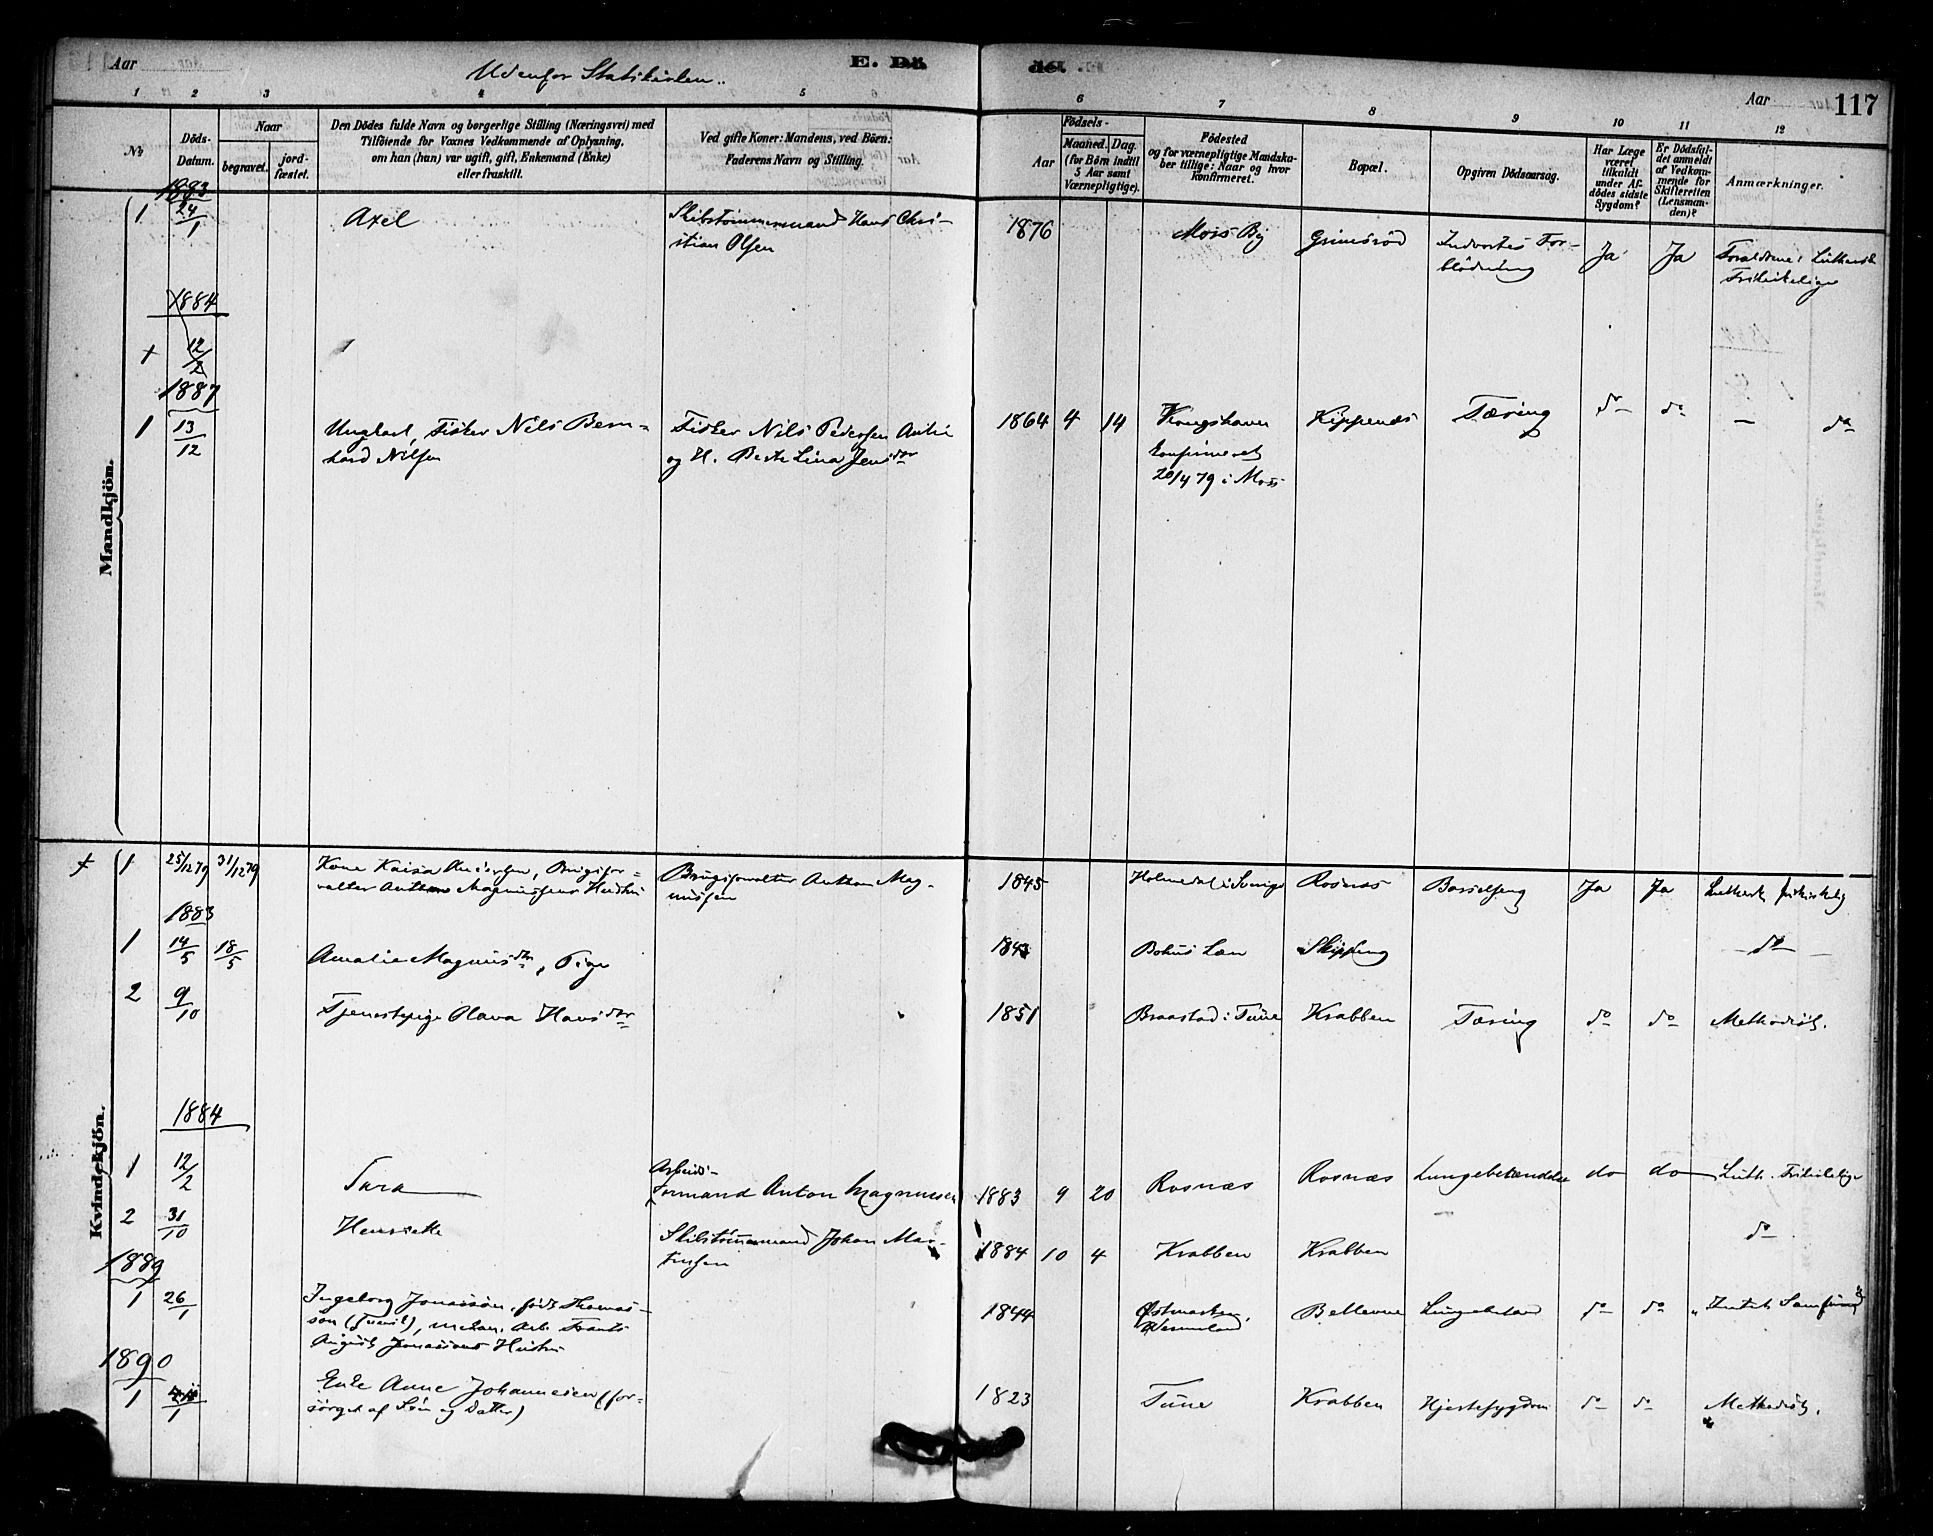 Aar
Udenfor Statskirken.
E. Dö
de.
Aar
117
1 2 3 4 5 6
6 7 8 9 10 11 12
No
Döds-
Datum.
Naar
begravet.
jord-
fæstet.
Den Dödes fulde Navn og borgerlige Stilling (Næringsvei) med
Tilföiende for Voxnes Vedkommende af Oplysning,
om han (hun) var ugift, gift, Enkemand (Enke)
eller fraskilt.
Ved gifte Koner: Mandens, ved Börn:
Faderens Navn og Stilling.
Födsels-
Aar
Maaned. Dag.
(for Børn indtil
5 Aar samt
Værnepligtige).
Födested
og for værnepligtige Mandska-
ber tillige: Naar og hvor
konfirmeret.
Bopæl.
Opgiven Dödsaarsag.
Har Læge
været
tilkaldt
under Af-
dödes sidste
Sygdom?
Er Dödsfal-
det anmeldt
af Vedkom-
mende for
Skifteretten
(Lensman-
den)?
Anmærkninger.
Mandkjön.
1883
1 24/1 Axel Skibstømmermand Hans Chri- 1876 Moss By Grimsrød Indvortes For- Ja Ja Forældrene Luthersk
stian Olsen blødning Frikirkelige
1884
+ 12/2
1887
1 13/12 Ungkarl, Fisker Nils Bern- Fisker Nils Pedersen 1864 4 14 Kongshavn Kippenes Tæring do do — do
hard Nilsen og H. Berte Lina Jensdtr konfirmeret
20/4 79 i Moss
Kvindekjön.
+ 1 25/12 79 31/12 79 Kone Kaisa Andersen, Brugsfor- Brugsforvalter Anthon Mag- 1845 Holmedal i Sverige Rosnæs Barselseng Ja Ja Luthersk frikirkelig
valter Anthon Magnussens Hustru nussen
1883
1 14/5 18/5 Amalie Magnusdtr, Pige Bohus Læn Skipping do
2 9/10 Tjenestepige Olava Hansdtr 1851 Braastad i Tune Krabben Tæring do do Methodist.
1884
1 12/2 Sara Arbeids-
formand Anton Magnussen 1883 9 20 Rosnæs Rosnæs Lungebetændelse do do Luth. Frikirkelige
2 31/10 Henriette Skibstømmermand Johan Mar- 1884 10 4 Krabben Krabben do
tinsen
1889
1 26/1 Ingeborg Jonasson, født Thomas- 1844 Østmarken, Bellevue Lungebetænd do do Luthsk Samfund
son (svensk), mekan. Arb. Frants Wermland,
August Jonassons Hustru
1890
1 Enke Anne Johannesen (for- 1823 Tune Krabben Hjertesygdom do do Methodist.
sørget af Søn og Datter)